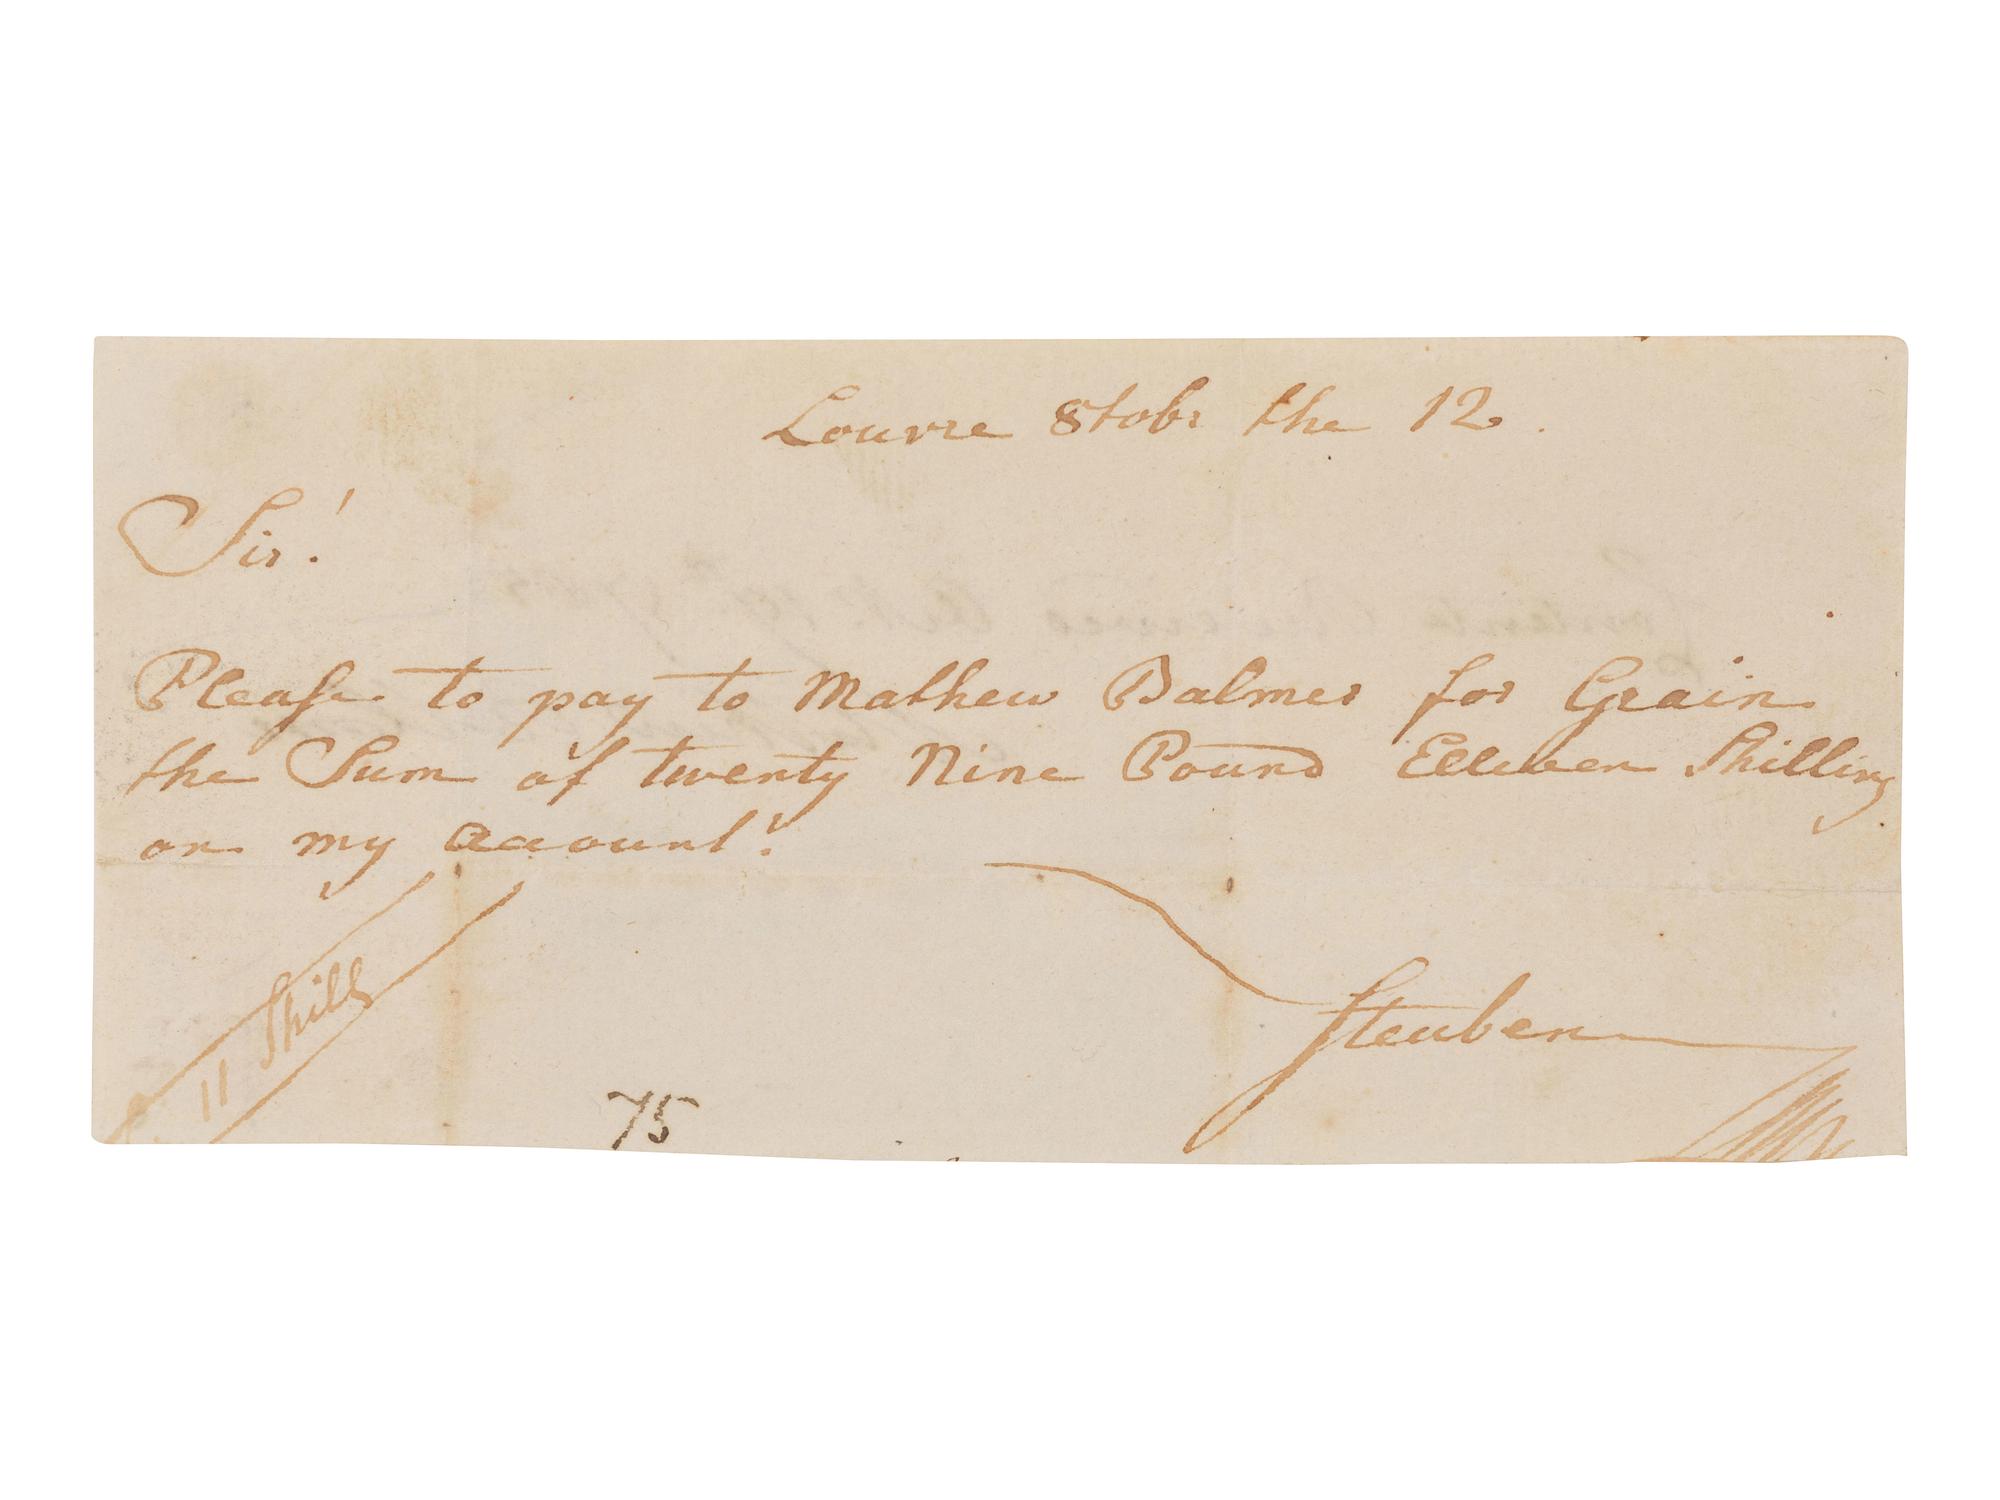 Louvre 8tobr the 12.
Sir!
Please to pay to Mathew Balmer for Grain
the Sum of twenty Nine Pound Elleven Shilling
on my account!
11 Shill
Steuben
75